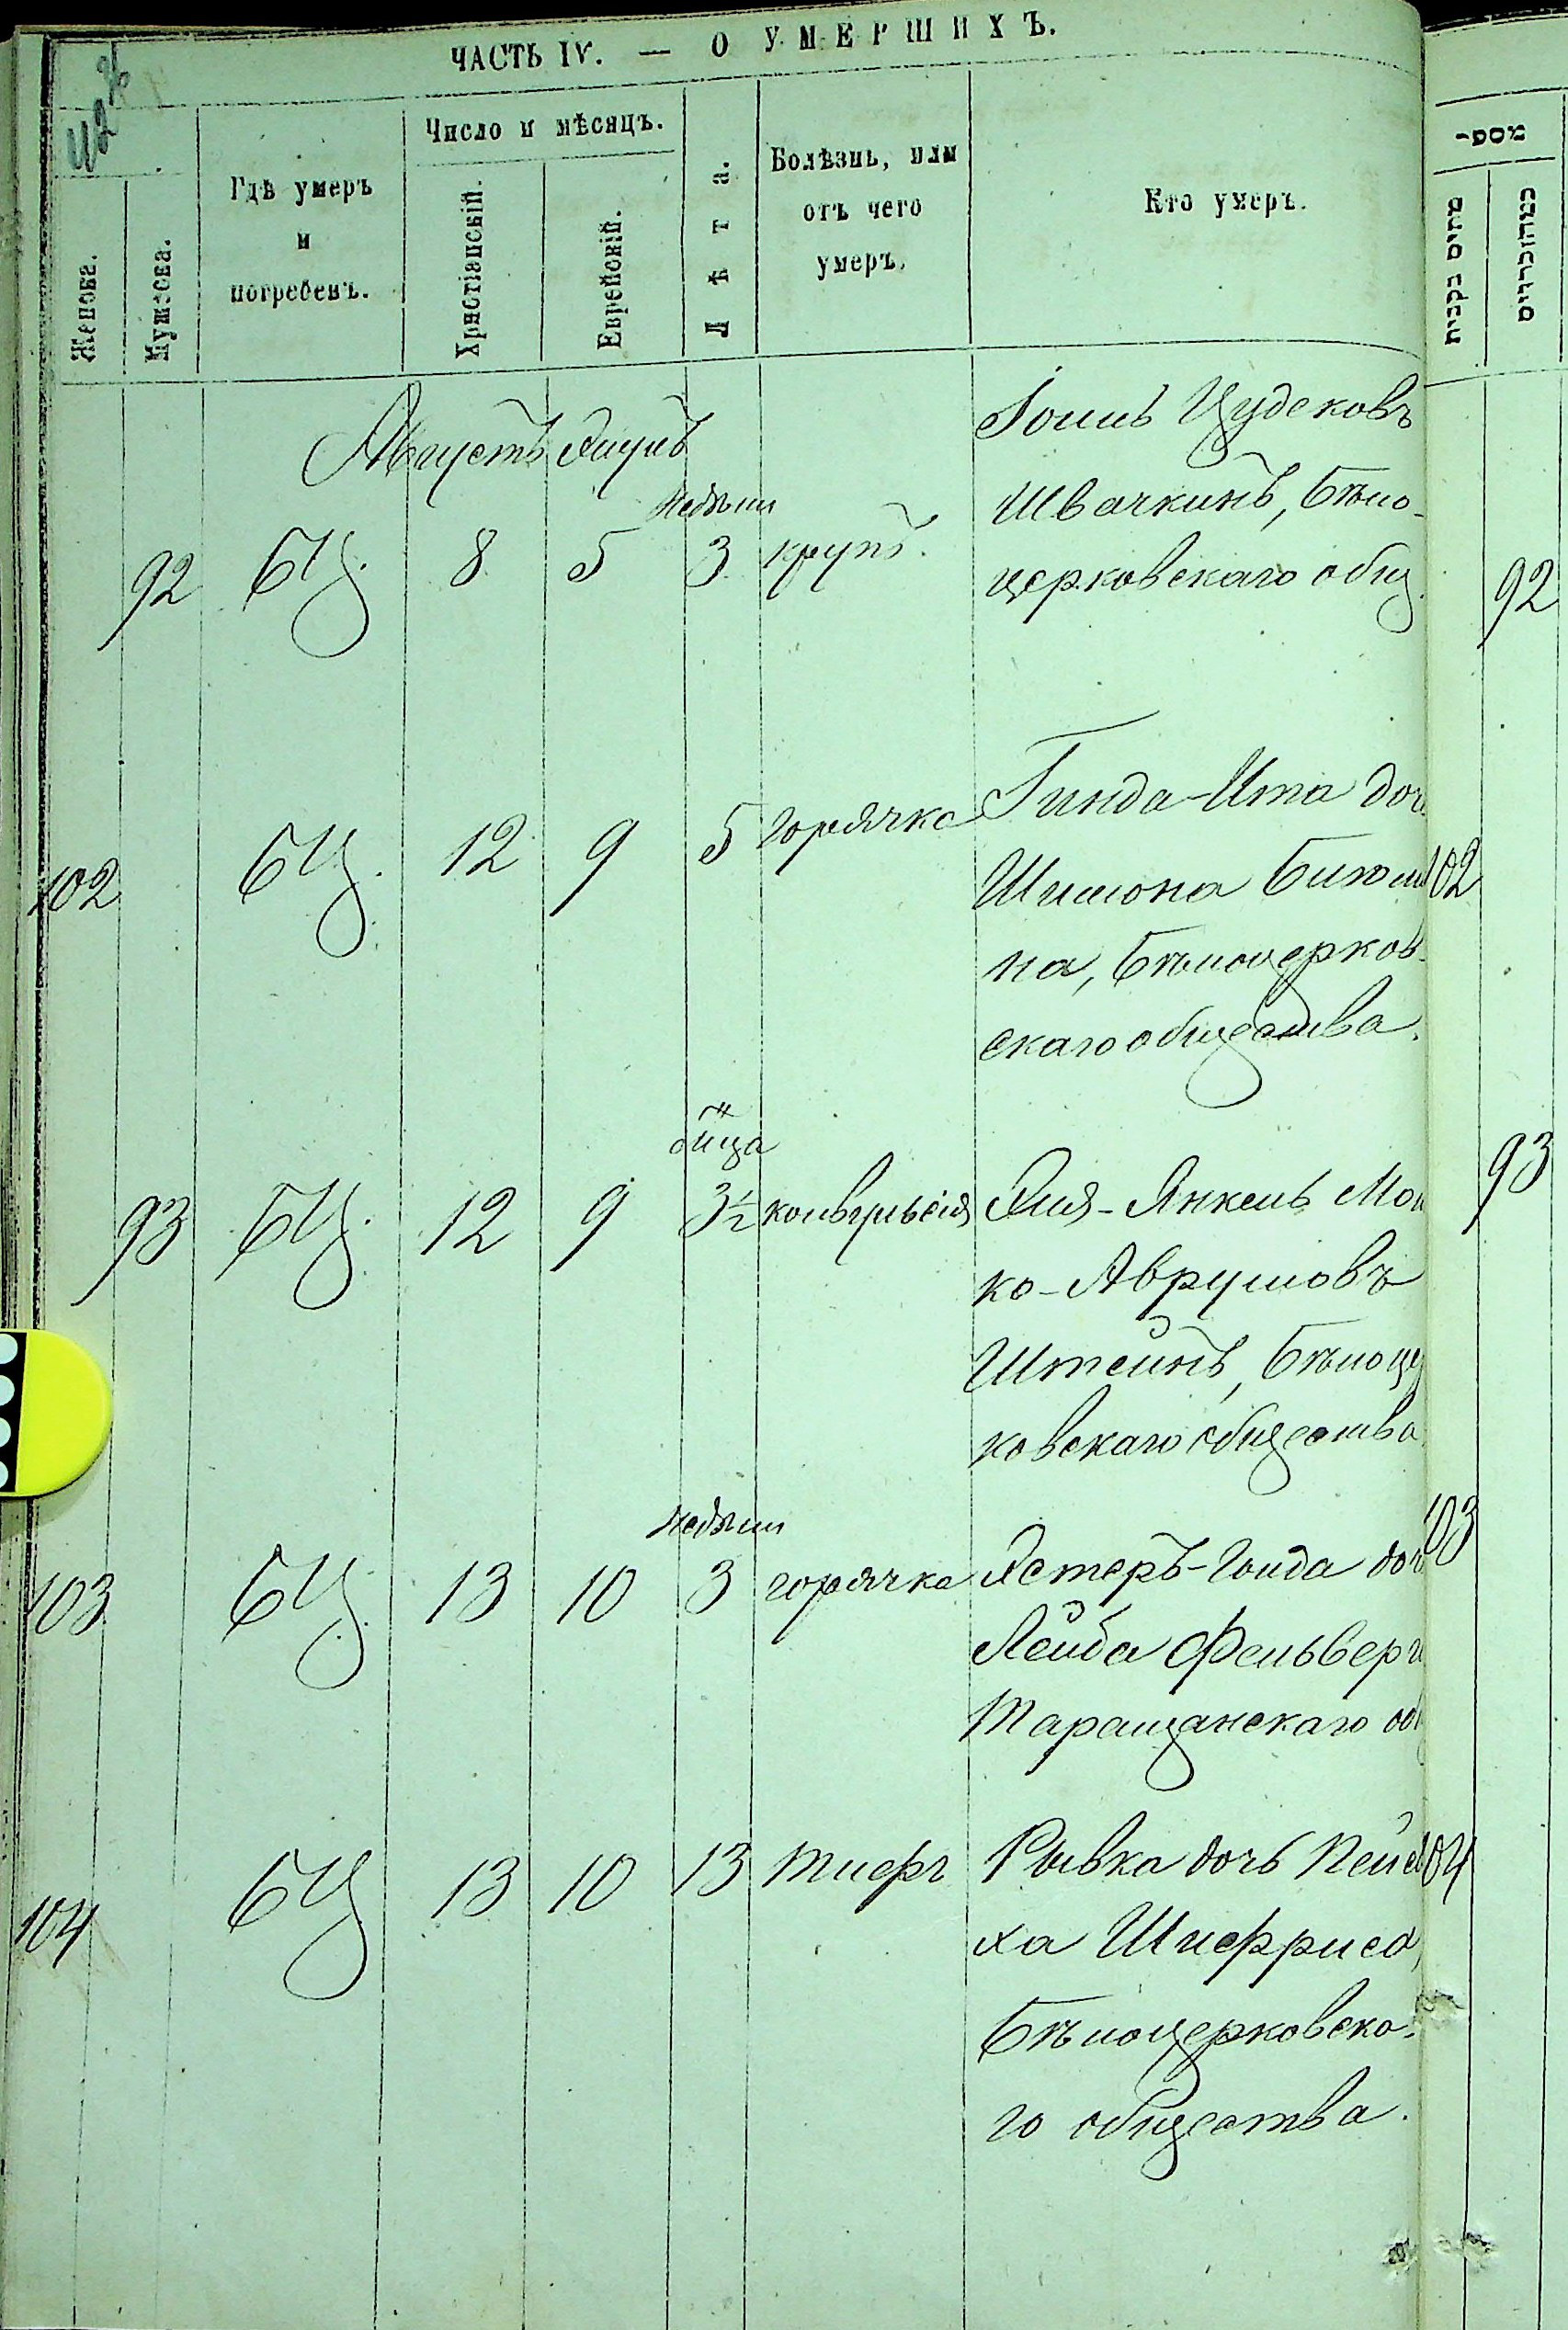 ЧАСТЬ IV. — О УМЕРШИХЪ.
Женска.
Мужеска.
Гдѣ умеръ
и
погребенъ.
Число и мѣсяцъ.
Христіанскій.
Еврейскій.
Лѣта.
Болѣзнь, или
отъ чего
умеръ.
Кто умеръ.
Августъ Элулъ
92 БЦ. 8 5 недѣли 3 крупъ.
Іоиль Цудековъ
Швачкинъ, Бѣло-
церковскаго общ.
92
102 БЦ. 12 9 5 горячка
Гинда-Ита доч
Шимона
на, Бѣлоцерков-
скаго общества.
102
93 БЦ. 12 9 3½ конвульсія
Эля-Янкель Мош
ко-Аврумовъ
Штейнъ, Бѣлоце
ковскаго общества
93
103 БЦ. 13 10 недѣли 3 горячка
Эстеръ-Голда доч
Лейба Фельберг
Таращанскаго об
103
104 БЦ 13 10 13 тифъ
Рывка дочь Пейс
ха Шифриса,
Бѣлоцерковска-
го общества.
104
מספר
מתים בקבות